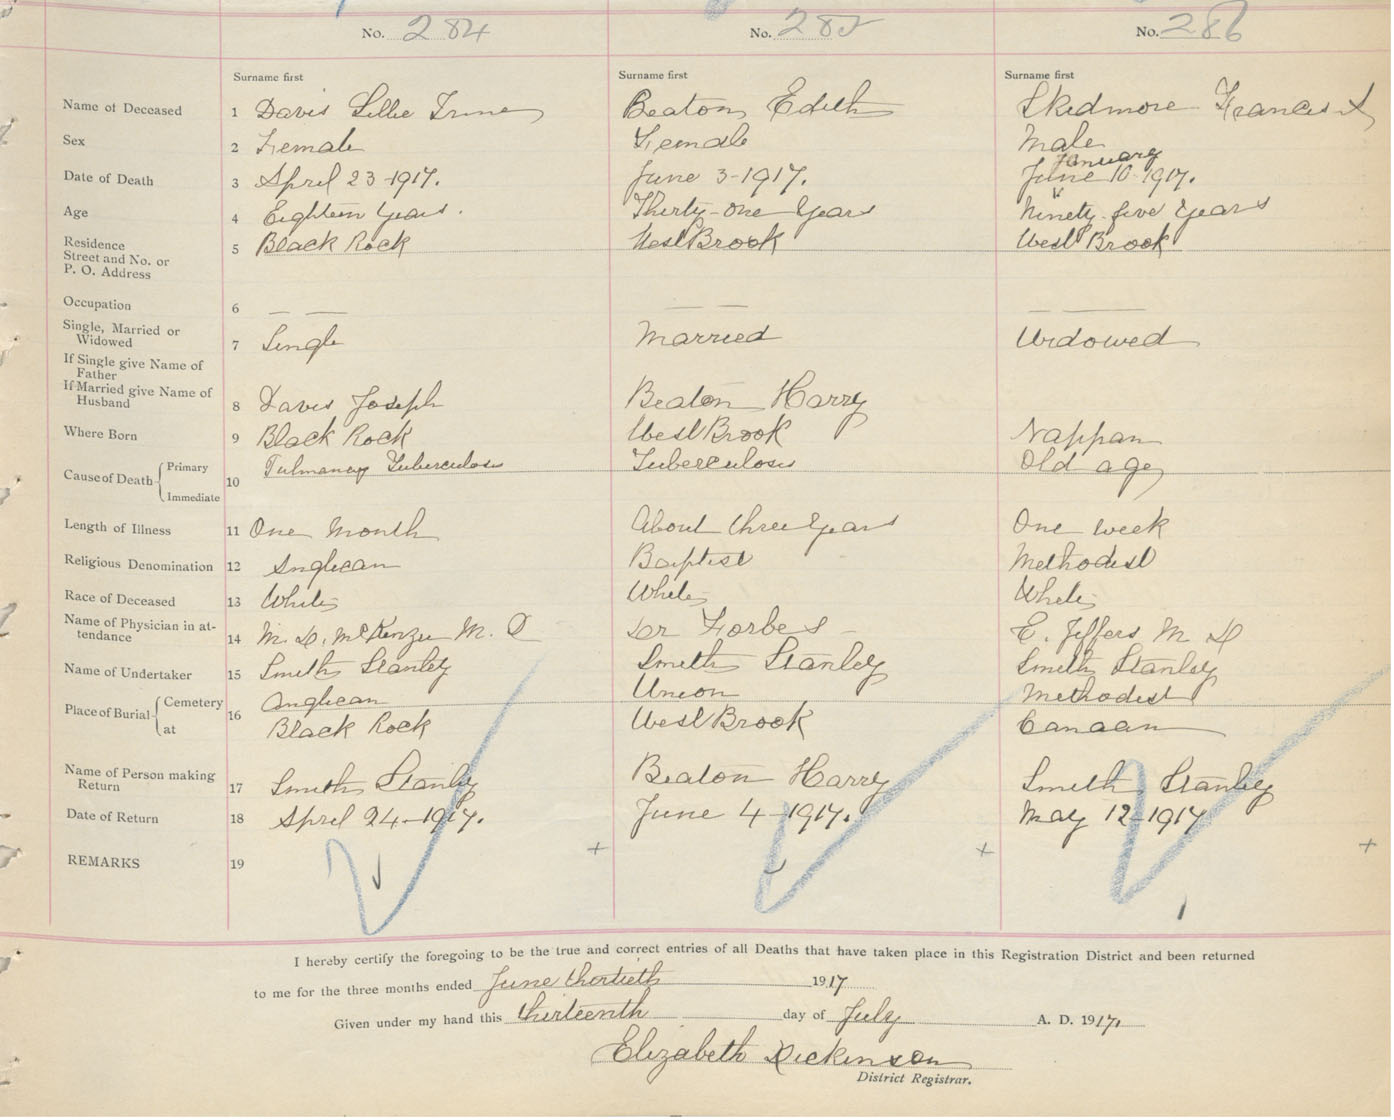 No. 284
No. 285
No. 286
Surname first
Surname first
Surname first
Name of Deceased 1 Davis Lillie Irene Beaton Edith Skidmore Francis
Sex 2 Female Female Male
January
Date of Death 3 April 23-1917. June 3-1917. June 10-1917.
Age 4 Eighteen Years. Thirty-one Years Ninety-five Years
Residence
Street and No. or
P. O. Address
5 Black Rock West Brook West Brook
Occupation 6 — — — — — —
Single, Married or
Widowed
7 Single Married Widowed
If Single give Name of
Father
If Married give Name of
Husband
8 Davis Joseph Beaton Harry
Where Born 9 Black Rock West Brook Nappan
Cause of Death Primary Pulmonary Tuberculosis Tuberculosis Old age
Immediate 10
Length of Illness 11 One Month About three Years One week
Religious Denomination 12 Anglican Baptist Methodist
Race of Deceased 13 White White White
Name of Physician in at-
tendance
14 M. D. McKenzie M. D Dr Forbes E. Jeffers M D
Name of Undertaker 15 Smith Stanley Smith Stanley Smith Stanley
Place of Burial Cemetery Anglican Union Methodist
at 16 Black Rock West Brook Canaan
Name of Person making
Return
17 Smith Stanley Beaton Harry Smith Stanley
Date of Return 18 April 24-1917. June 4-1917. May 12-1917
REMARKS 19 + + +
I hereby certify the foregoing to be the true and correct entries of all Deaths that have taken place in this Registration District and been returned
to me for the three months ended June thirtieth 1917
Given under my hand this thirteenth day of July A. D. 1917.
Elizabeth Dickinson
District Registrar.